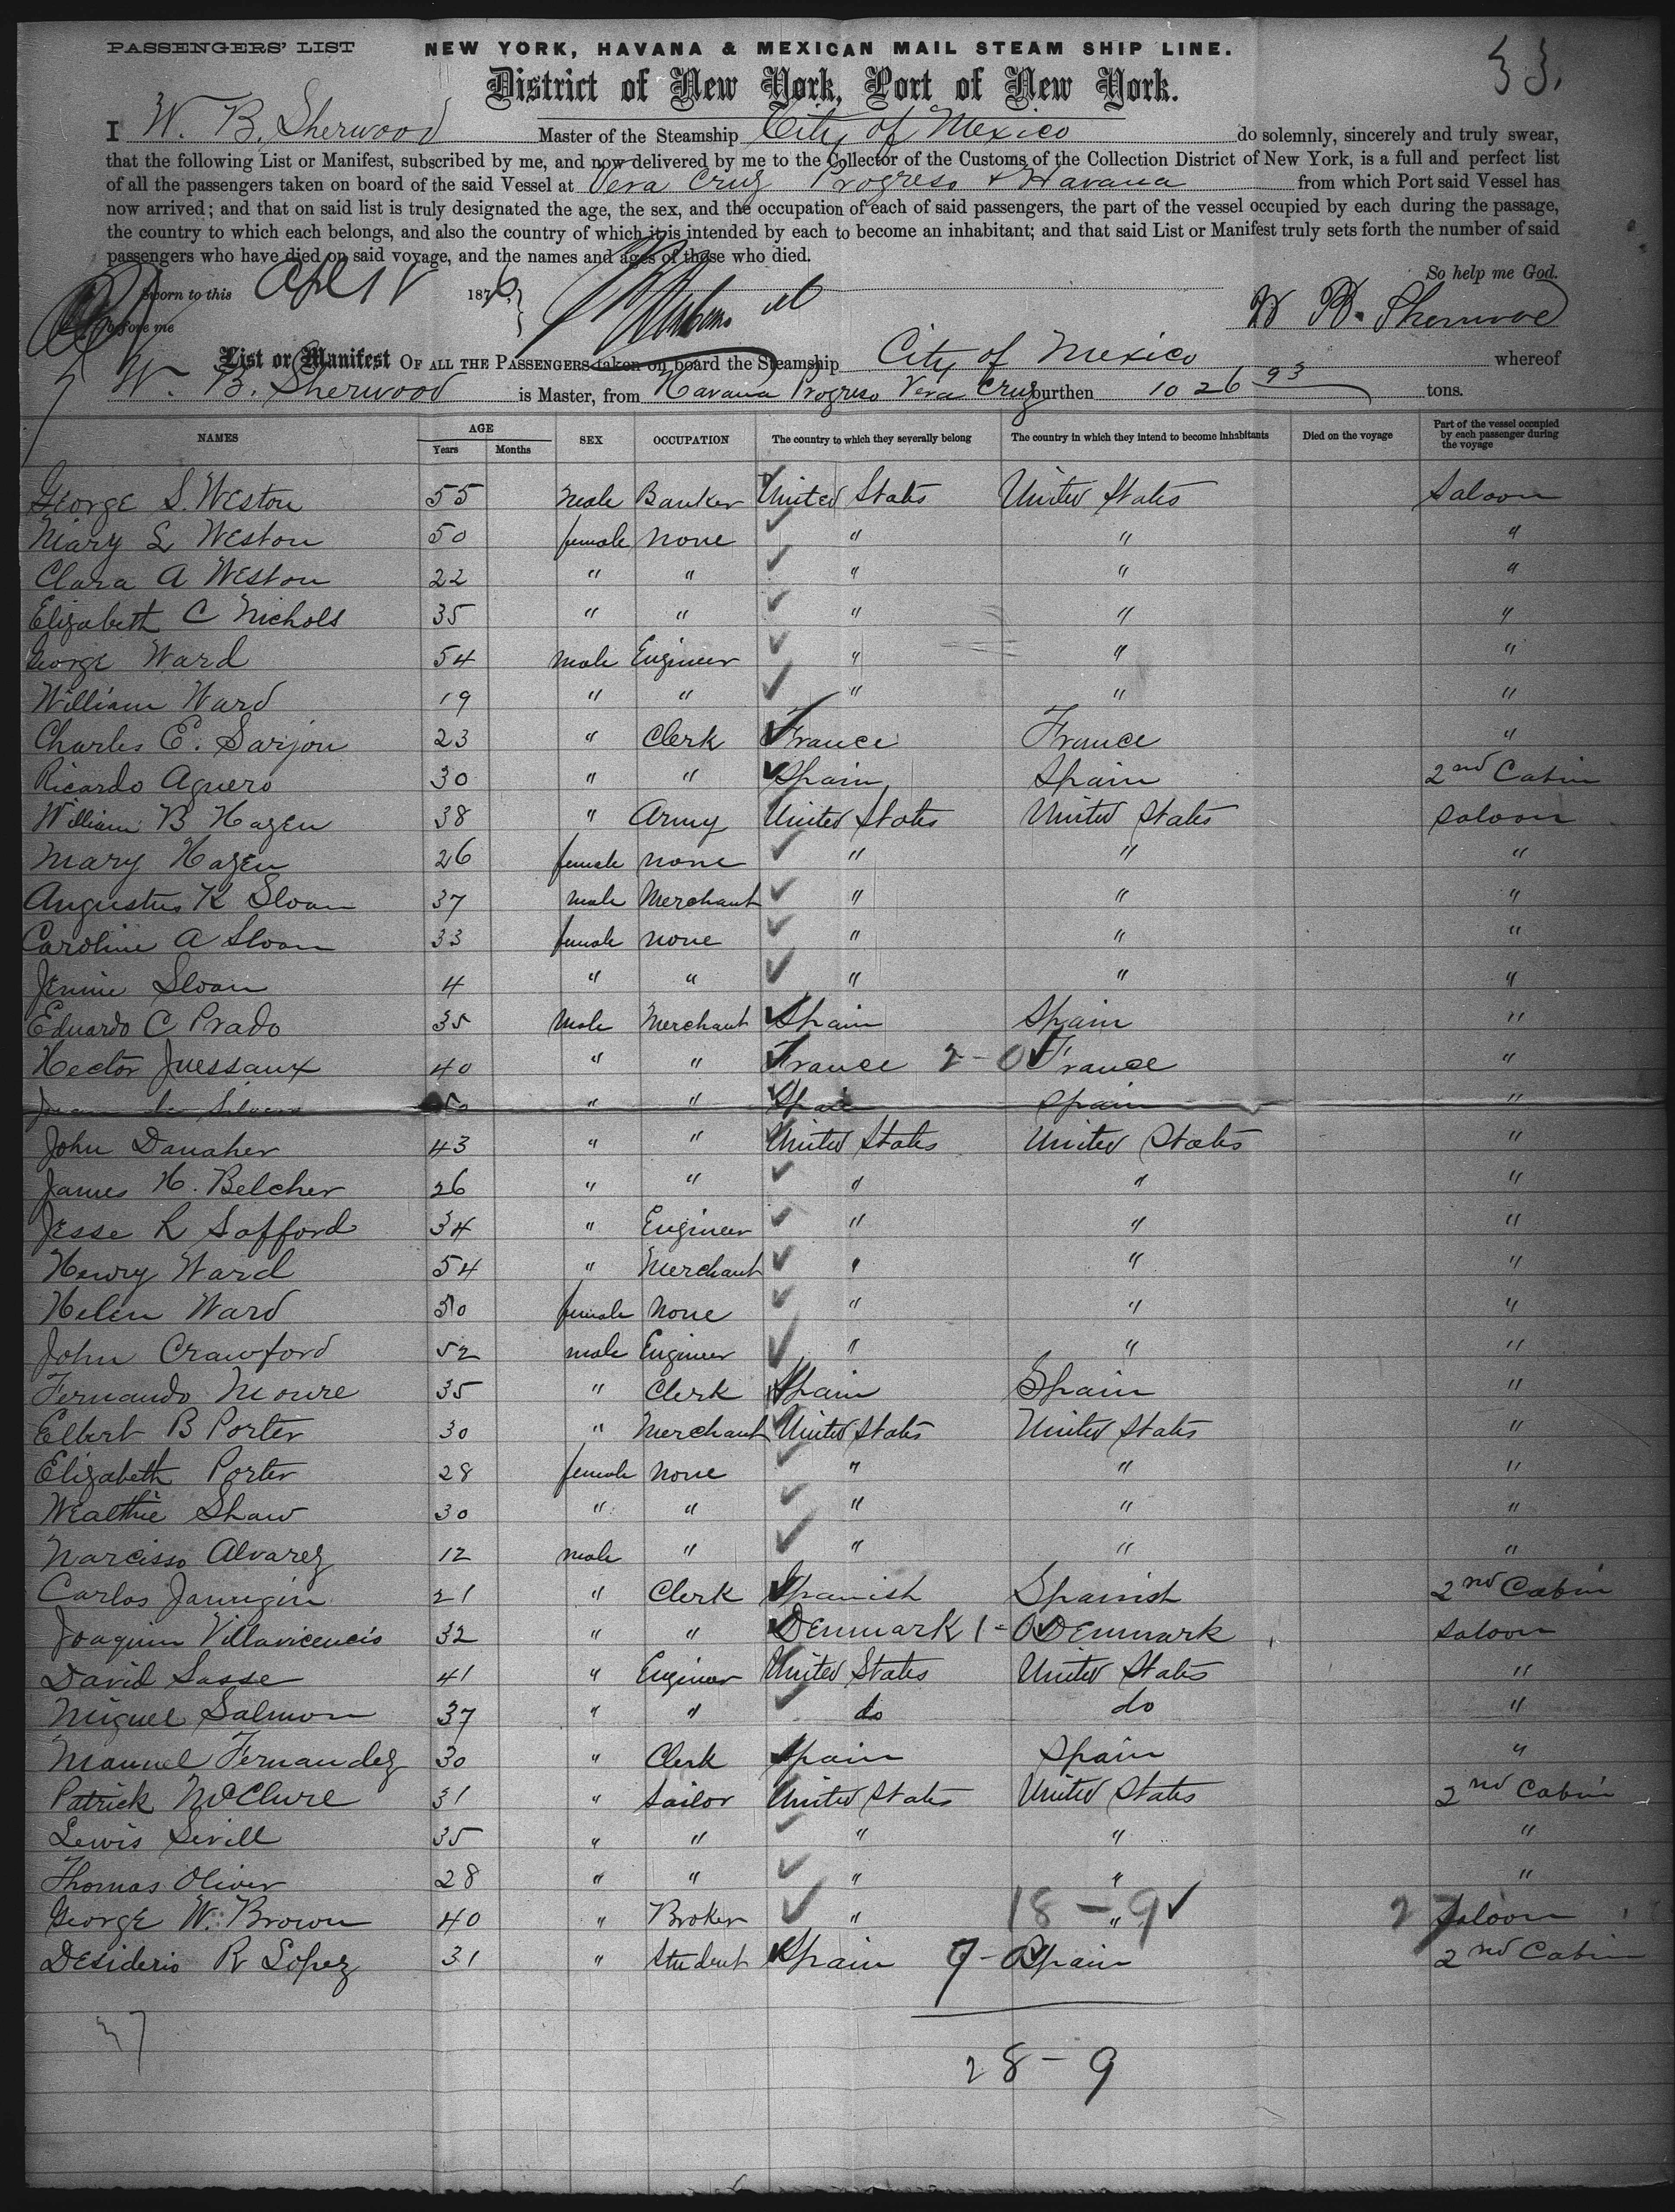 PASSENGERS' LIST NEW YORK, HAVANA & MEXICAN MAIL STEAM SHIP LINE. 33.
District of New York, Port of New York.
I W. B. Sherwood Master of the Steamship City of Mexico do solemnly, sincerely and truly swear,
that the following List or Manifest, subscribed by me, and now delivered by me to the Collector of the Customs of the Collection District of New York, is a full and perfect list
of all the passengers taken on board of the said Vessel at Vera Cruz Progreso & Havana from which Port said Vessel has
now arrived; and that on said list is truly designated the age, the sex, and the occupation of each of said passengers, the part of the vessel occupied by each during the passage,
the country to which each belongs, and also the country of which it is intended by each to become an inhabitant; and that said List or Manifest truly sets forth the number of said
passengers who have died on said voyage, and the names and ages of those who died.
So help me God.
Sworn to this Apl 1876,
before me W B. Sherwood
List or Manifest OF ALL THE PASSENGERS taken on board the Steamship City of Mexico whereof
W. B. Sherwood is Master, from Havana Progreso Vera Cruz burthen 1026 93 tons.
NAMES AGE Years Months SEX OCCUPATION The country to which they severally belong The country in which they intend to become inhabitants Died on the voyage Part of the vessel occupied by each passenger during the voyage
George S. Weston 55 Male Banker United States United States Saloon
Mary S Weston 50 female none " " "
Clara A Weston 22 " " " " "
Elizabeth C Nichols 35 " " " " "
George Ward 54 male Engineer " " "
William Ward 19 " " " " "
Charles E. Sarjou 23 " Clerk France France "
Ricardo Aguero 30 " " Spain Spain 2nd Cabin
William B Hazen 38 " Army United States United States Saloon
Mary Hazen 26 female none " " "
Augustus K Sloan 37 male Merchant " " "
Caroline A Sloan 33 female none " " "
Jennie Sloan 4 " " " " "
Eduardo C Prado 35 Male Merchant Spain Spain "
Hector Juessaux 40 " " France 2-0 France "
" " Spain Spain "
John Danaher 43 " " United States United States "
James H. Belcher 26 " " " " "
Jesse R Safford 34 " Engineer " " "
Henry Ward 54 " Merchant " " "
Helen Ward 50 female None " " "
John Crawford 52 male Engineer " " "
Fernando Moure 35 " Clerk Spain Spain "
Elbert B Porter 30 " Merchant United States United States "
Elizabeth Porter 28 female None " " "
Wealthie Shaw 30 " " " " "
Narcisso Alvarez 12 male " " " "
Carlos 21 " Clerk Spanish Spanish 2nd Cabin
Joaquin Villavicencio 32 " " Denmark 1-0 Denmark Saloon
David Sasse 41 " Engineer United States United States "
Miguel Salmon 37 " " do do "
Manuel Fernandez 30 " Clerk Spain Spain "
Patrick McClure 31 " Sailor United States United States 2nd Cabin
Lewis Sevill 35 " " " " "
Thomas Oliver 28 " " " " "
George W. Brown 40 " Broker " 18-9 " 27 Saloon
Desiderio R Lopez 31 " Student Spain 7-0 Spain 2nd Cabin
37
28-9